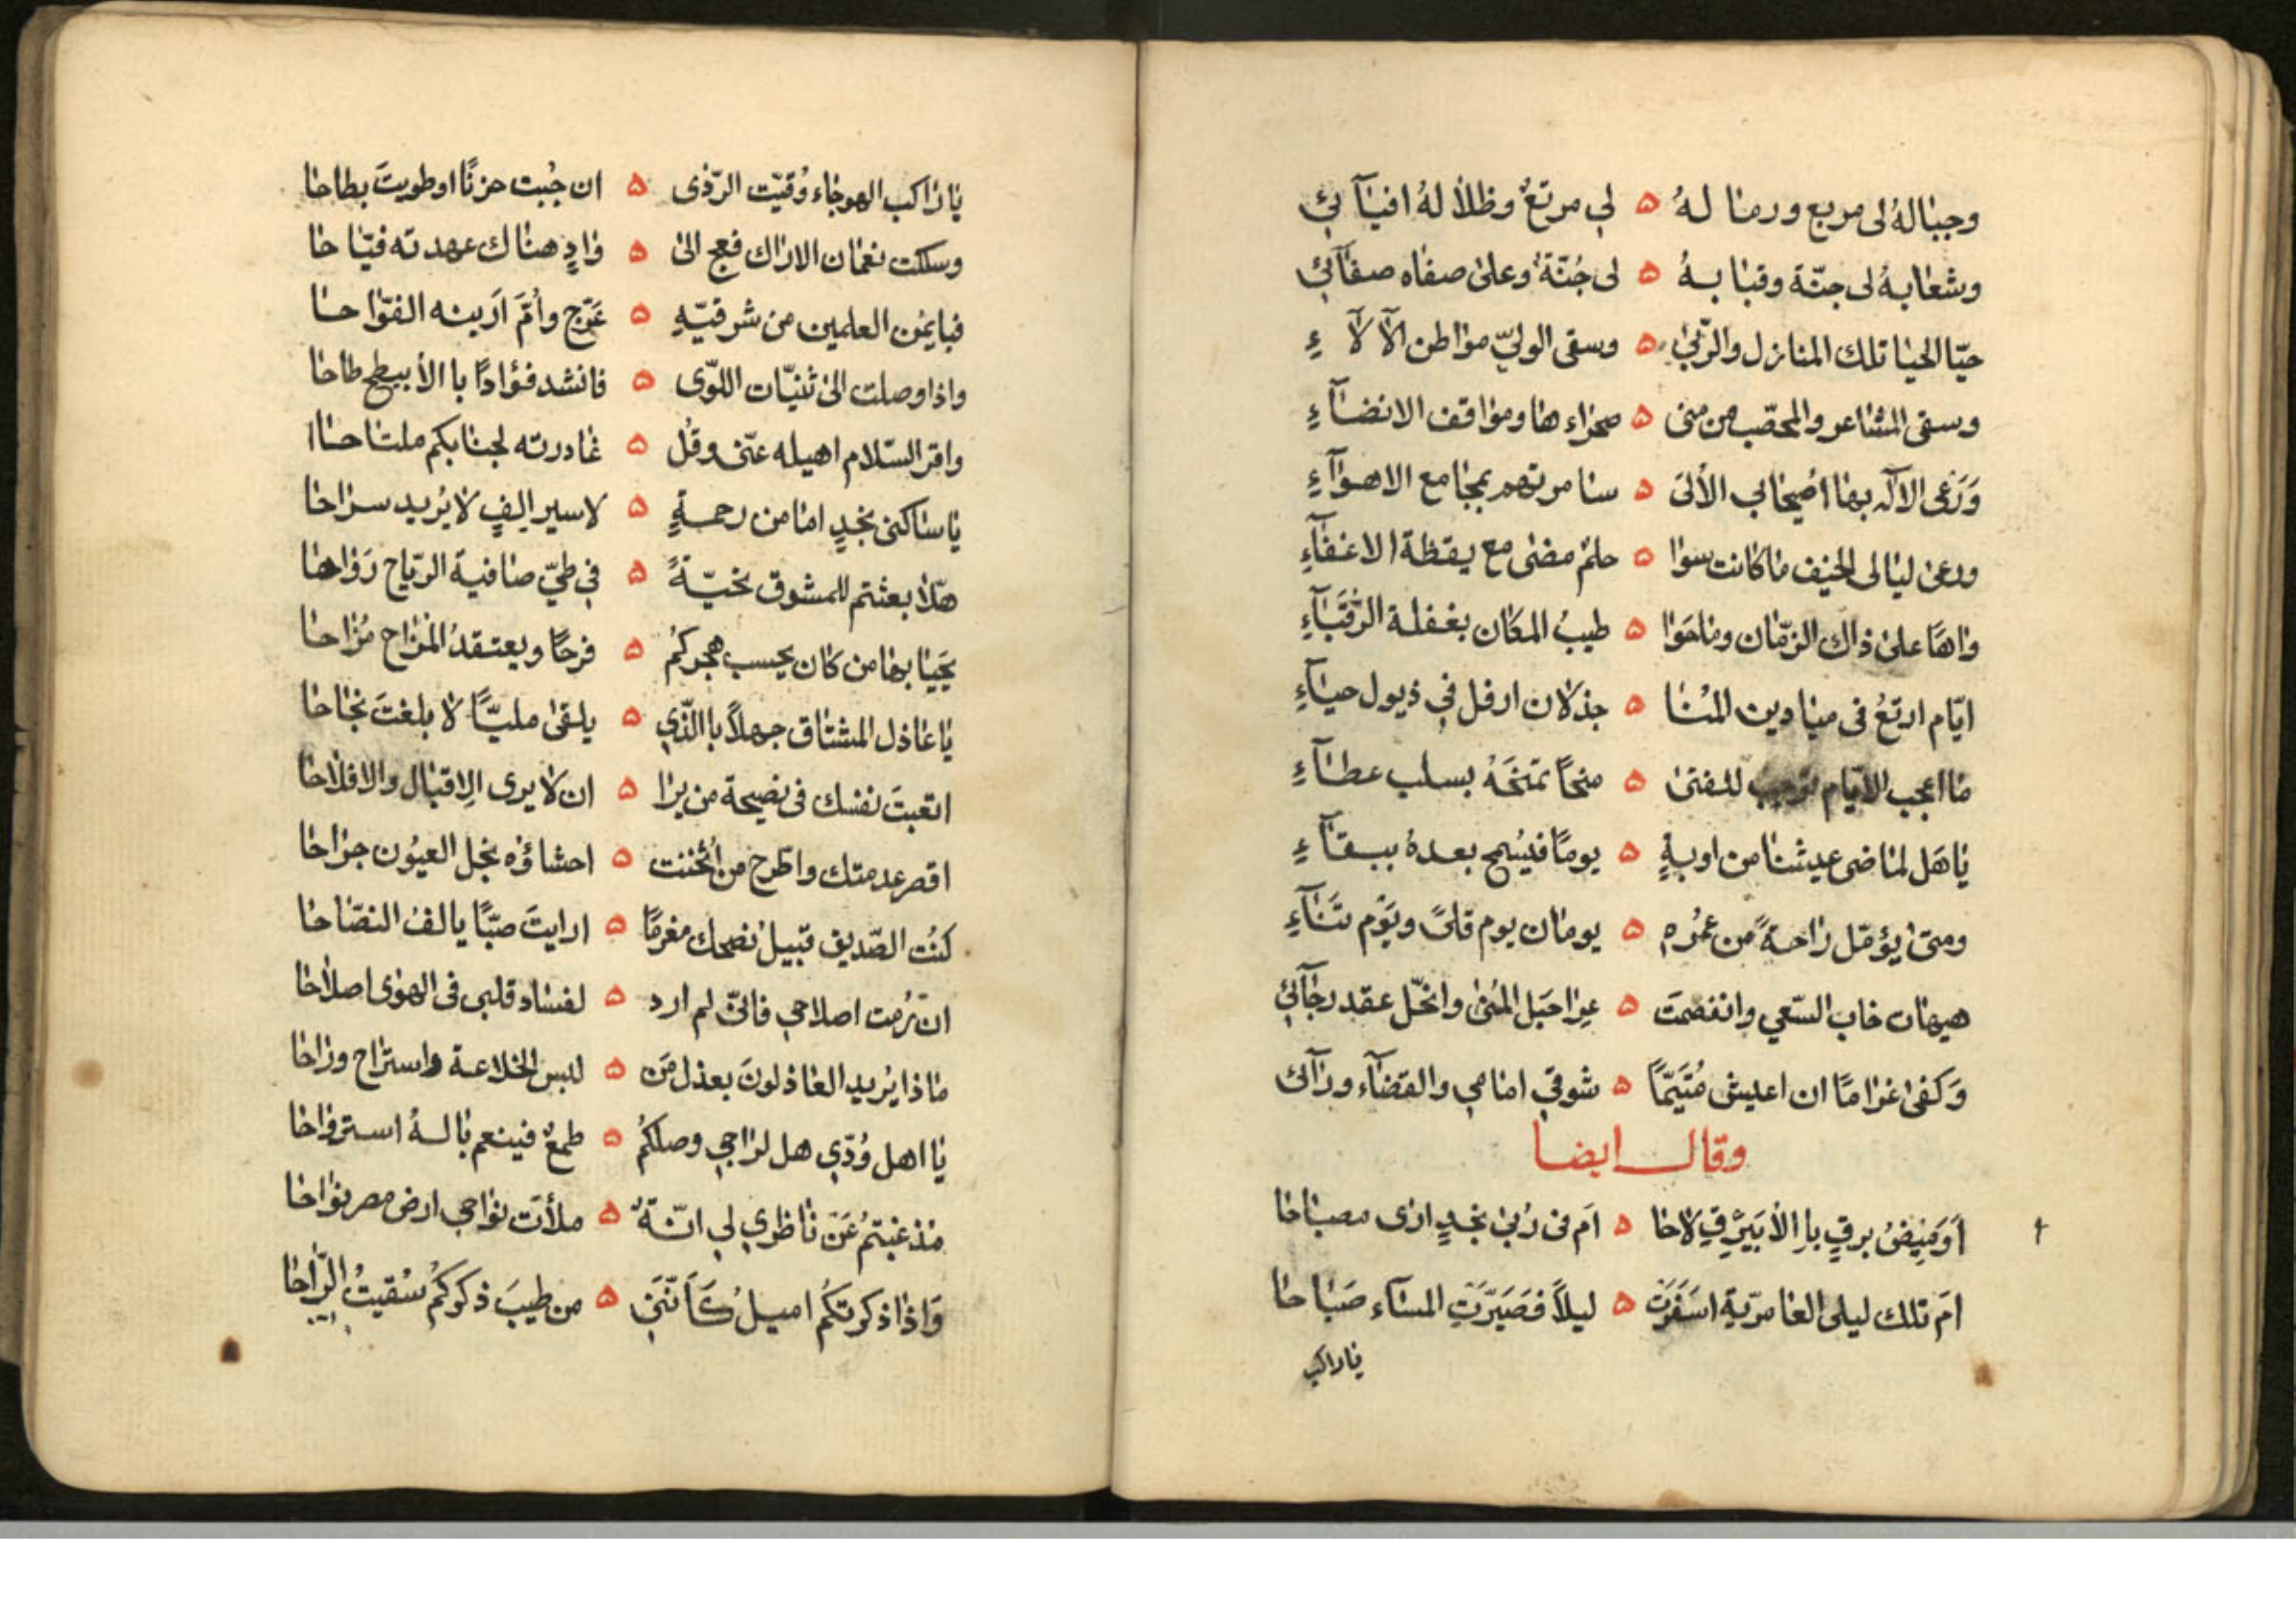 وجبالهُ لى مربع ورمالهُ ۵ لي مرتعٌ وظلالهُ افيآئي
وشعابهُ لى جنّة وقبابهُ ۵ لى جُنّةٌ وعلى صفاه صفآئي
حيّا الحيا تلك المنازل والرّبىٰ ۵ وسقى الوليّ مواطن الآلآءِ
وسقى المشاعر والمحصّب من منى ۵ صحراء ها ومواقف الانضآءِ
وَرَعَى الالٓه بها اُصيحابي الأُلىَ ۵ سامرتهم بمجامع الاهوآءِ
ورعىٰ ليالى الخيف ماكانت سوا ۵ حلمٌ مضى مع يقظة الاغفآءِ
واهًا علىٰ ذاك الزّمان وماحَوا ۵ طيبُ المكان بغفلة الرّقَبآءِ
ايّام ارتعُ فى ميادين المُنا ۵ جذلان ارفل في ذيول حيآءِ
مااعجب الايّام توجب للفتىٰ ۵ منحاً تمنحَهُ بسلب عطآءِ
ياهَل لماضى عيشنا من اوبةٍ ۵ يومًا فيُسمح بعدهُ ببقآءِ
ومتىٰ يؤمّل راحةً من عُمُرهِ ۵ يومان يوم قلىً ويَوْم تَنَآءِ
هيهات خاب السّعي وانفصمَت ۵ عِرا حَبَل المُنىٰ وانحّل عقد رجآئي
وَكفىٰ غرامًا ان اعيش مُتَيَّمًا ۵ شوقي امامي والقضآء ورآئى
وقال ايضا
اَوَمِيضُ برقٍ بِالأُبَيْرِقِ لاحا ۵ اَم فى رُبىٰ نجدٍ ارى مصباحا
اَم تلك ليلى العامريّة اسَفَرَت ۵ ليلاً فصَيَّرَتِ المسآء صَبَاحا
ياراكب
ياراكب الهوجاء وُقيّت الرّدى ۵ ان جُبت حزنًا اوطويتَ بطاحا
وسلكت نعمان الاراك فعج الىٰ ۵ وادٍ هناك عهدته فيّاحا
فبايمُن العلمين من شرقيّهِ ۵ عَرّج واُمَّ اَرينه الفوّاحا
واذا وصلت الىٰ ثنيّات اللوّى ۵ فانشد فؤادًا باالأُبيطح طاحا
واقر السّلام اهيله عنّى وقُل ۵ غادرته لجنابكم ملتاحاا
ياساكنى نجدٍ امامن رحمةٍ ۵ لاسير اِلفٍ لايُريد سراحا
هلّا بعثتم للمشوق تحيّةً ۵ في طيّ صافية الرّياح رَواحا
يَحيَا بها من كان يحسب هجركُم ۵ فرحًا ويعتقدُ المَزاح مُزاحا
ياعاذل المشتاق جهلاً باالّذي ۵ يلقىٰ مليًّا لا بلغتَ نجاحا
اتعبتَ نفسك فى نصيحة من يرا ۵ ان لايرى الِاقبال والافلاحا
اقصر عدمتك واطّرح من اُثخنت ۵ احشاؤُه نجل العيُون جراحا
كنُت الصّديق قبيل نصحك مغرمًا ۵ ارايتَ صبّاً يالف النصّاحا
ان رُمت اصلاحي فانّى لم ارد ۵ لفساد قلبى فى الهوٰى اصلاحا
ماذا يُريد العاذلونَ بعذل مَن ۵ لبس الخلاعة واستراح وراحا
يااهل وُدّي هل لراجي وصلكُم ۵ طمعٌ فينعم بالهُ استرواحا
مُذ غبتُمُ عَن ناظري لي انّةٌ ۵ ملأت نواحي ارض مصر نواحا
وَاذا ذكرتكُم اميلُ كَاَنَّنى ۵ من طيبَ ذكركُم سُقيتُ الرّاحا